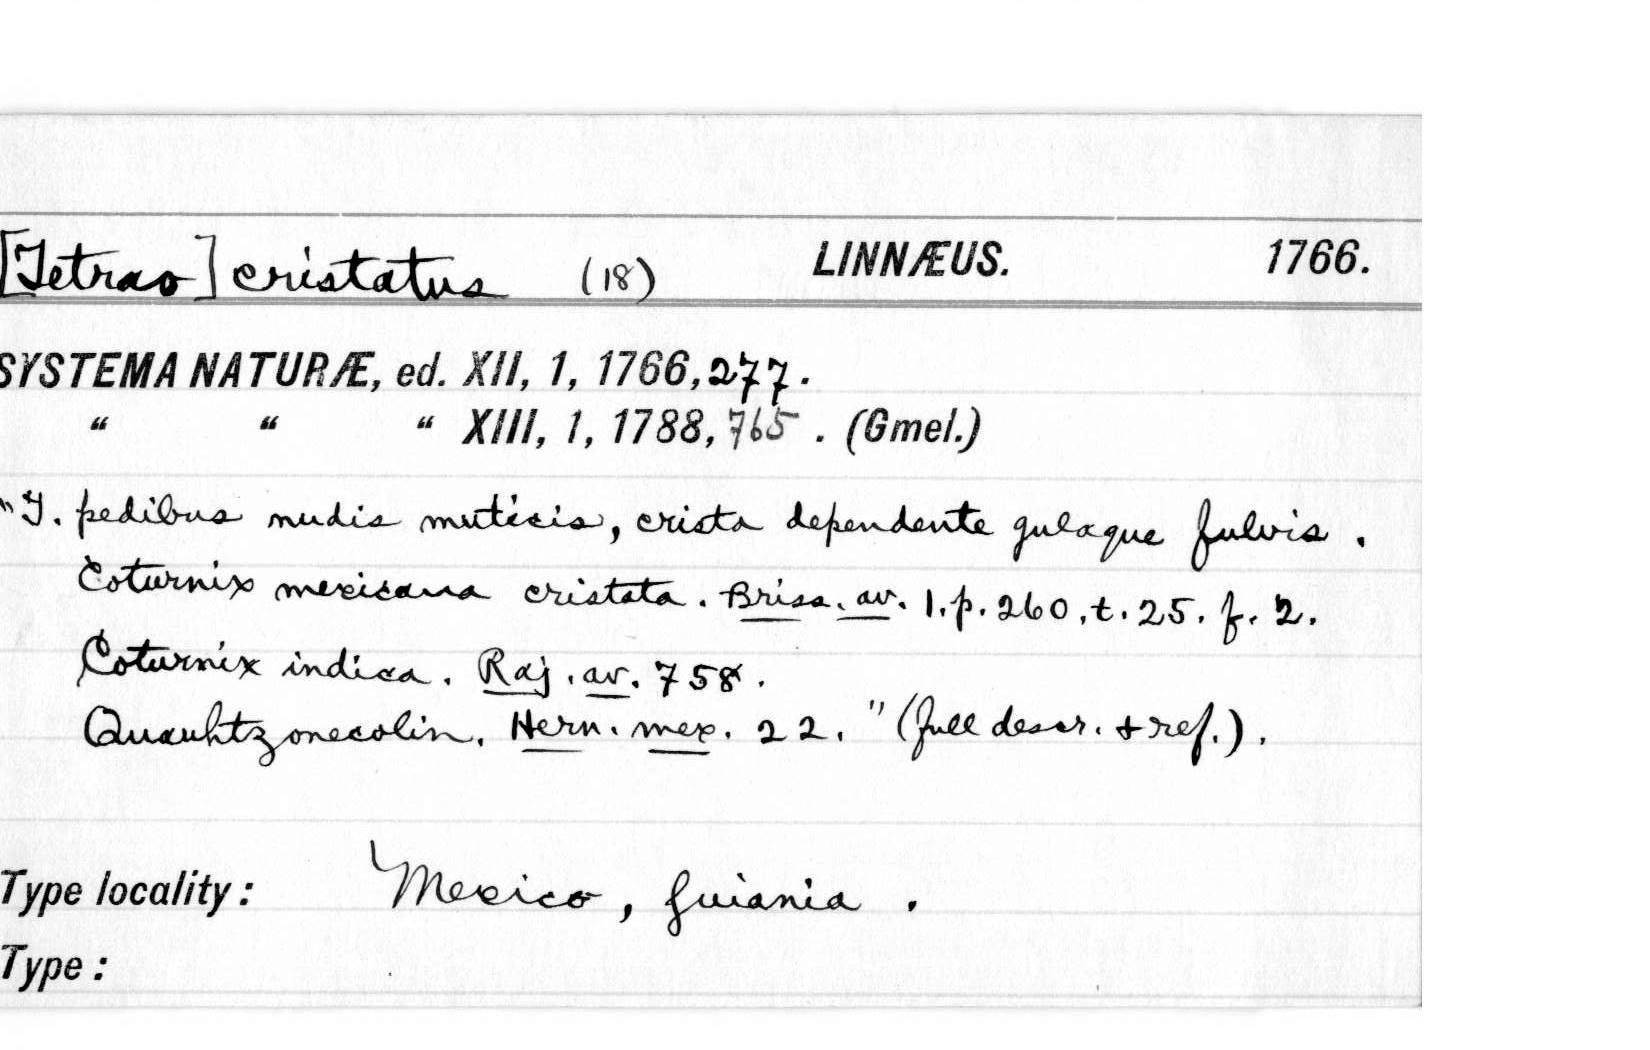 [Tetrao] cristatus (18) LINNÆUS. 1766.
SYSTEMA NATURÆ, ed. XII, 1, 1766, 277.
“ “ “ XIII, 1, 1788, 765. (Gmel.)
"T. pedibus nudis muticis, crista dependente gulaque fulvis.
Coturnix mexicana cristata. Briss. av. 1. p. 260. t. 25. f. 2.
Coturnix indica. Raj. av. 758.
Quauhtzonecolin. Hern. mex. 22." (full descr. + ref.).
Type locality: Mexico, Guiania.
Type: